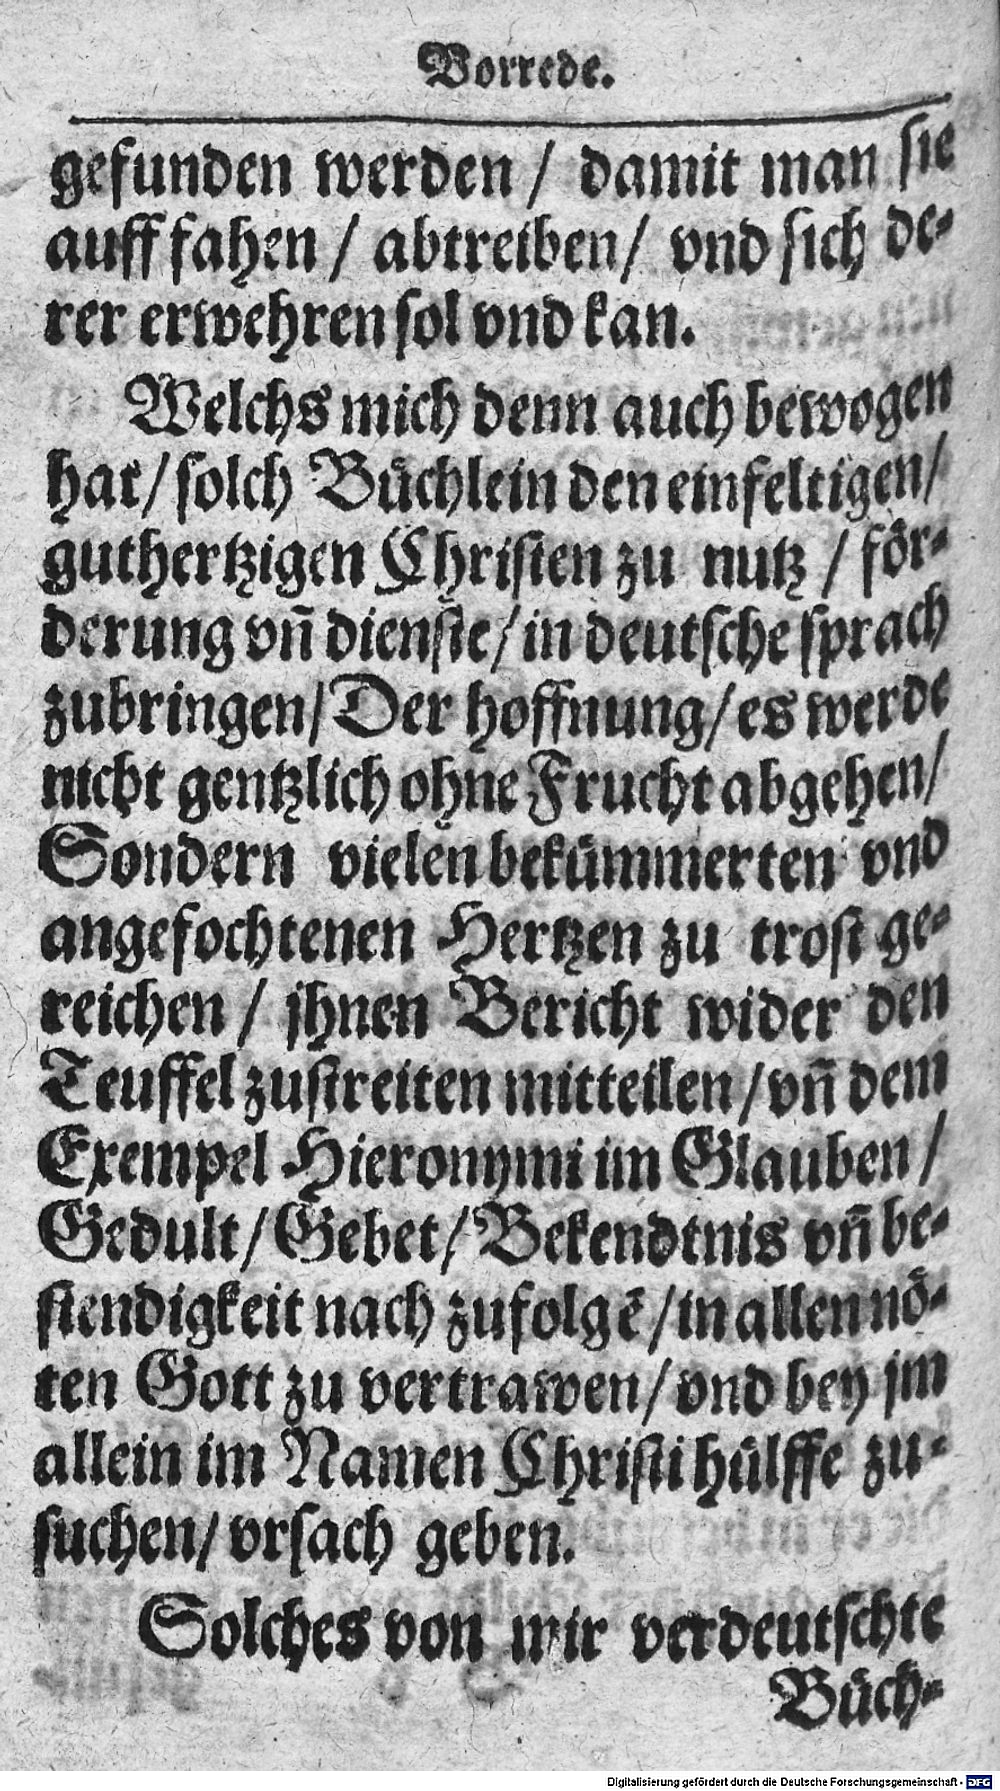 Vorrede.
gefunden werden / damit man sie
auff fahen / abtreiben / vnd sich de-
rer erwehren sol vnd kan.
Welchs mich denn auch bewogen
hat / solch Bůchlein den einfeltigen /
guthertzigen Christen zu nutz / för-
derung vñ dienste / in deutsche sprach
zubringen / Der hoffnung / es werde
nicht gentzlich ohne Frucht abgehen /
Sondern vielen bekům̃erten vnd
angefochtenen Hertzen zu trost ge-
reichen / jhnen Bericht wider den
Teuffel zustreiten mitteilen / vñ dem
Exempel Hieronymi im Glauben /
Gedult / Gebet / Bekendtnis vñ be-
stendigkeit nach zufolgẽ / in allen nö-
ten Gott zu vertrawen / vnd bey jm
allein im Namen Christi hůlffe zu-
suchen / vrsach geben.
Solches von mir verdeutschte
Bůch-
Digitalisierung gefördert durch die Deutsche Forschungsgemeinschaft - DFG